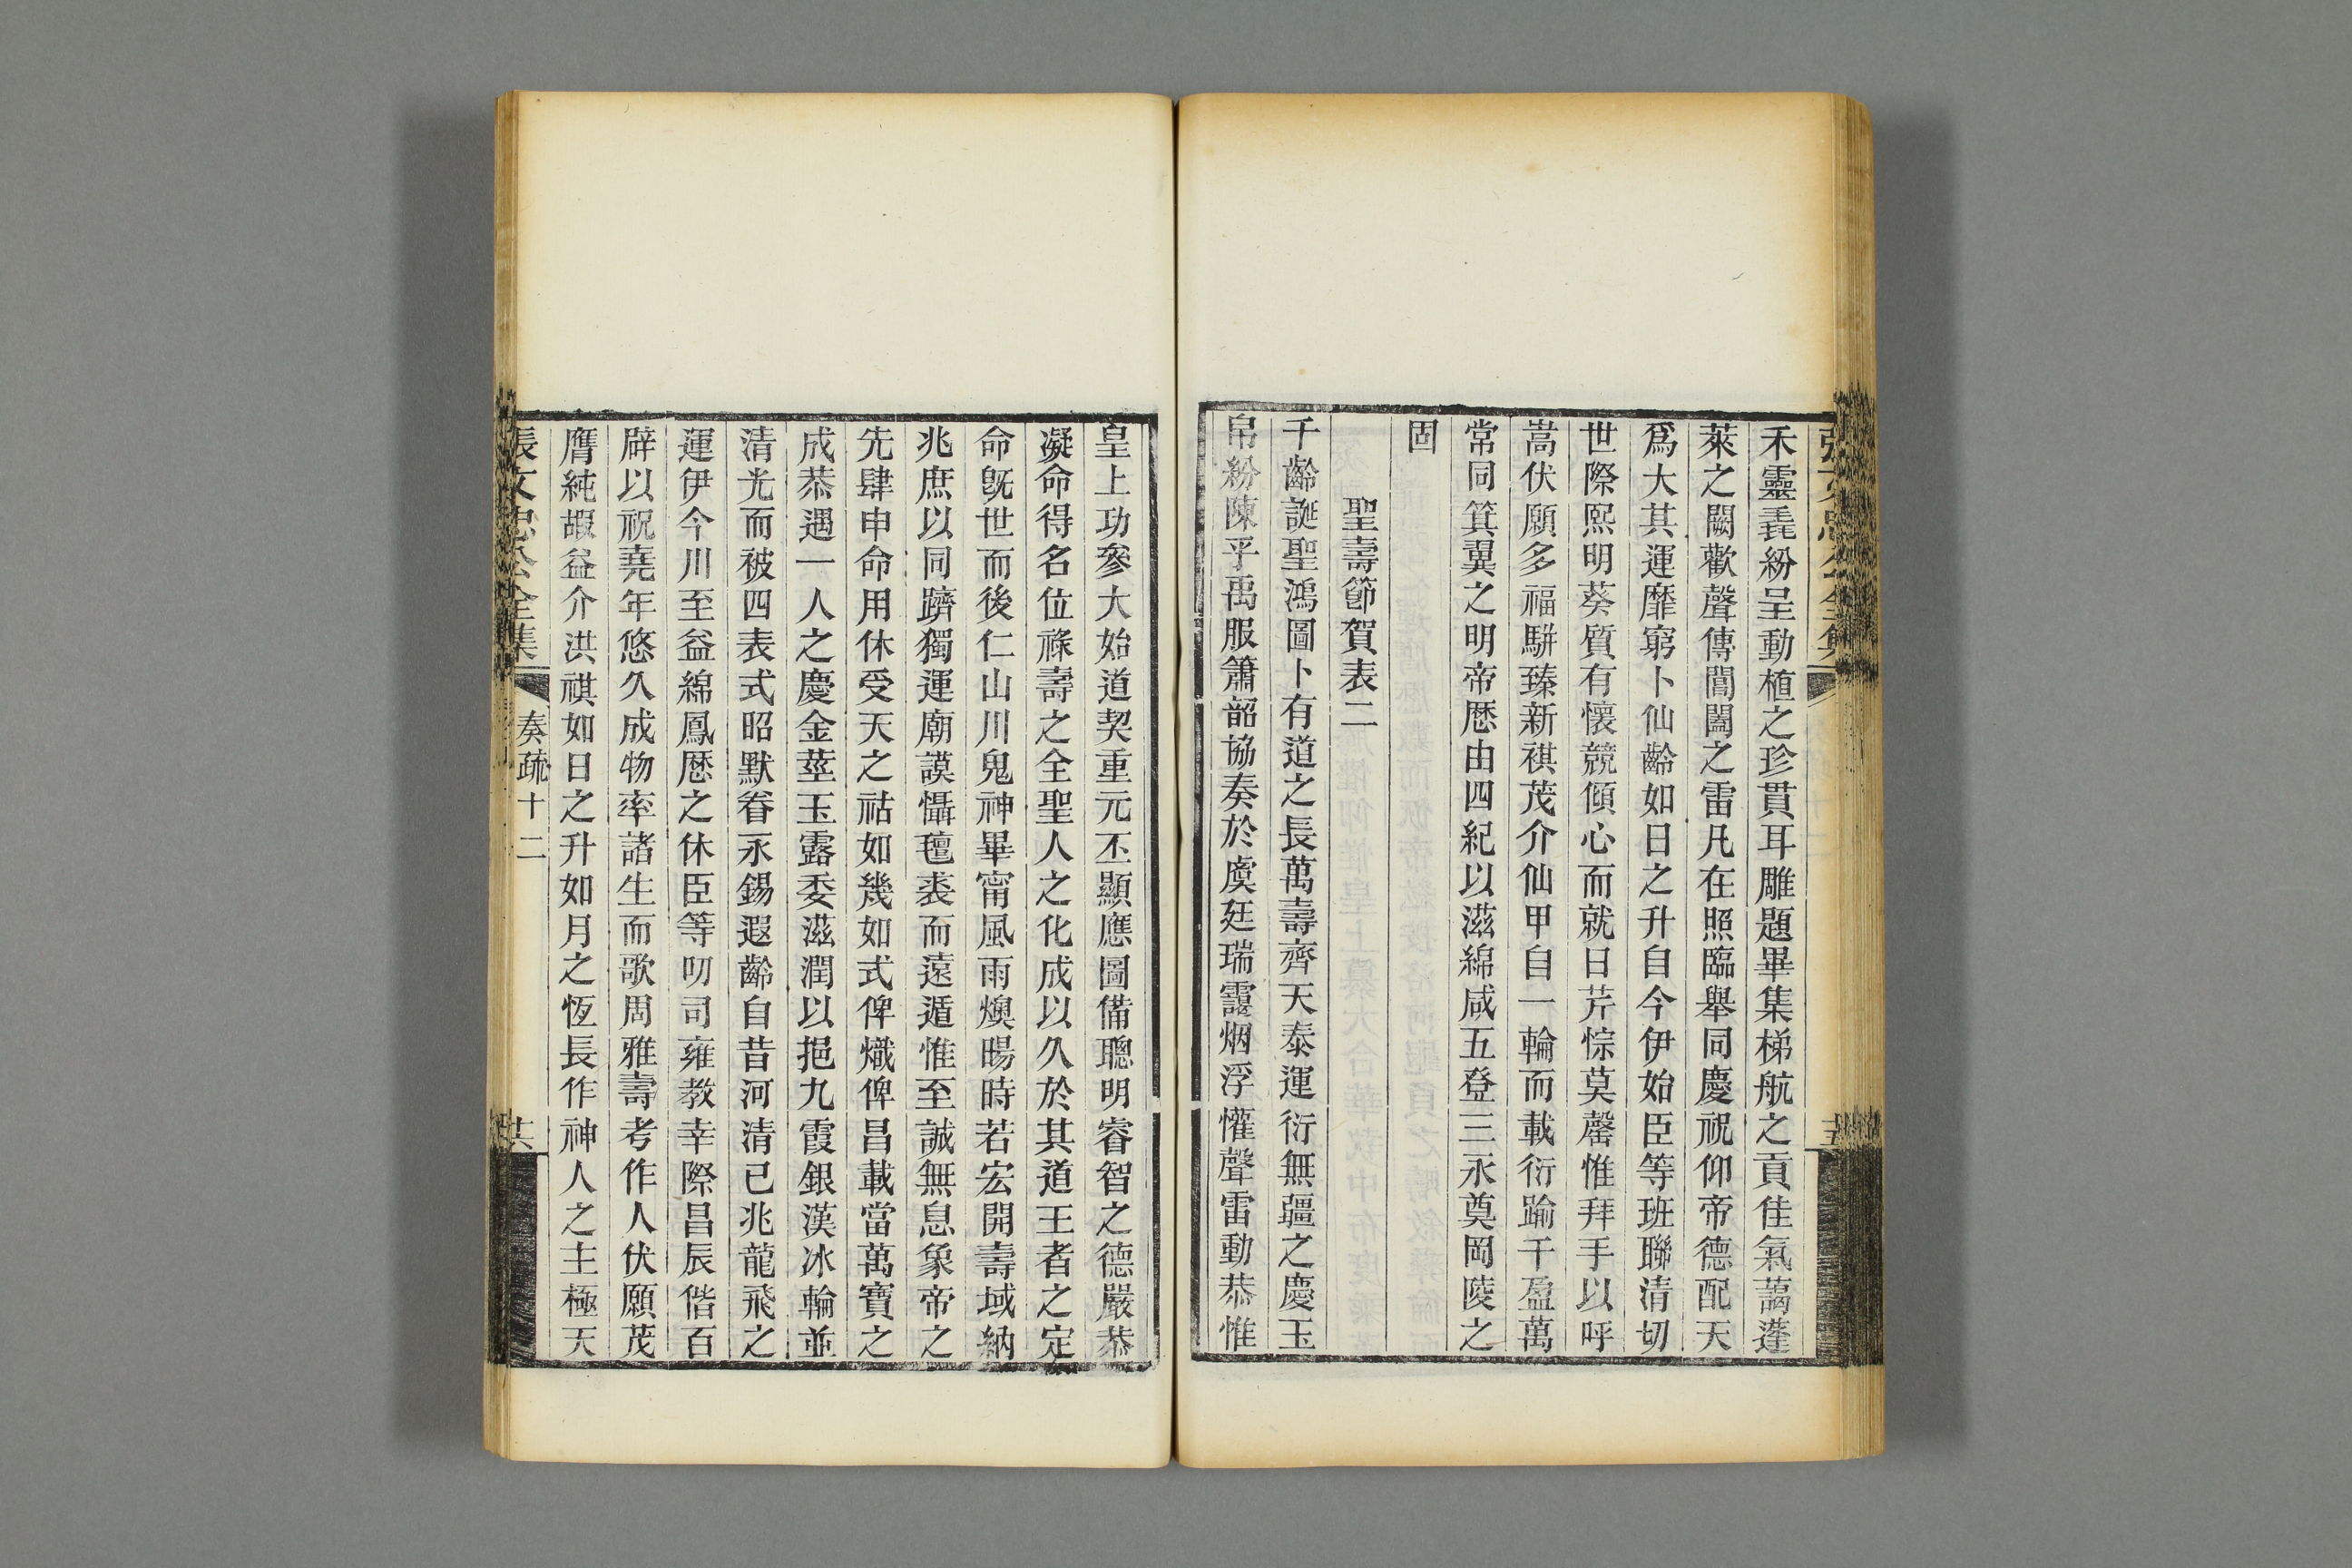 禾靈毳紛呈動植之珍貫耳雕題畢集梯航之貢佳氣藹蓬
萊之闕歡聲傳閶闔之雷凡在照臨舉同慶祝仰帝德配天
爲大其運靡窮卜仙齡如日之升自今伊始臣等班聯清切
世際熙明葵質有懷競傾心而就日芹悰莫罄惟拜手以呼
嵩伏願多福駢臻新祺茂介仙甲自一輪而載衍踰千盈萬
常同箕翼之明帝厯由四紀以滋綿咸五登三永奠岡陵之
固
聖壽節賀表二
千齡誕聖鴻圖卜有道之長萬壽齊天泰運衍無疆之慶玉
帛紛陳乎禹服簫韶協奏於虞廷瑞靄烟浮懽聲雷動恭惟
皇上功參大始道契重元丕顯應圖備聰明睿智之德嚴恭
凝命得名位祿壽之全聖人之化成以久於其道王者之定
命旣世而後仁山川鬼神畢甯風雨燠暘時若宏開壽域納
兆庶以同躋獨運廟謨懾氊裘而遠遁惟至誠無息象帝之
先肆申命用休受天之祜如幾如式俾熾俾昌載當萬寶之
成恭遇一人之慶金莖玉露委滋潤以挹九霞銀漢冰輪並
清光而被四表式昭默眷永錫遐齡自昔河清已兆龍飛之
運伊今川至益綿鳳厯之休臣等叨司雍教幸際昌辰偕百
辟以祝堯年悠久成物率諸生而歌周雅壽考作人伏願茂
膺純嘏益介洪祺如日之升如月之恆長作神人之主極天
張文忠公全集
奏疏十二
十六